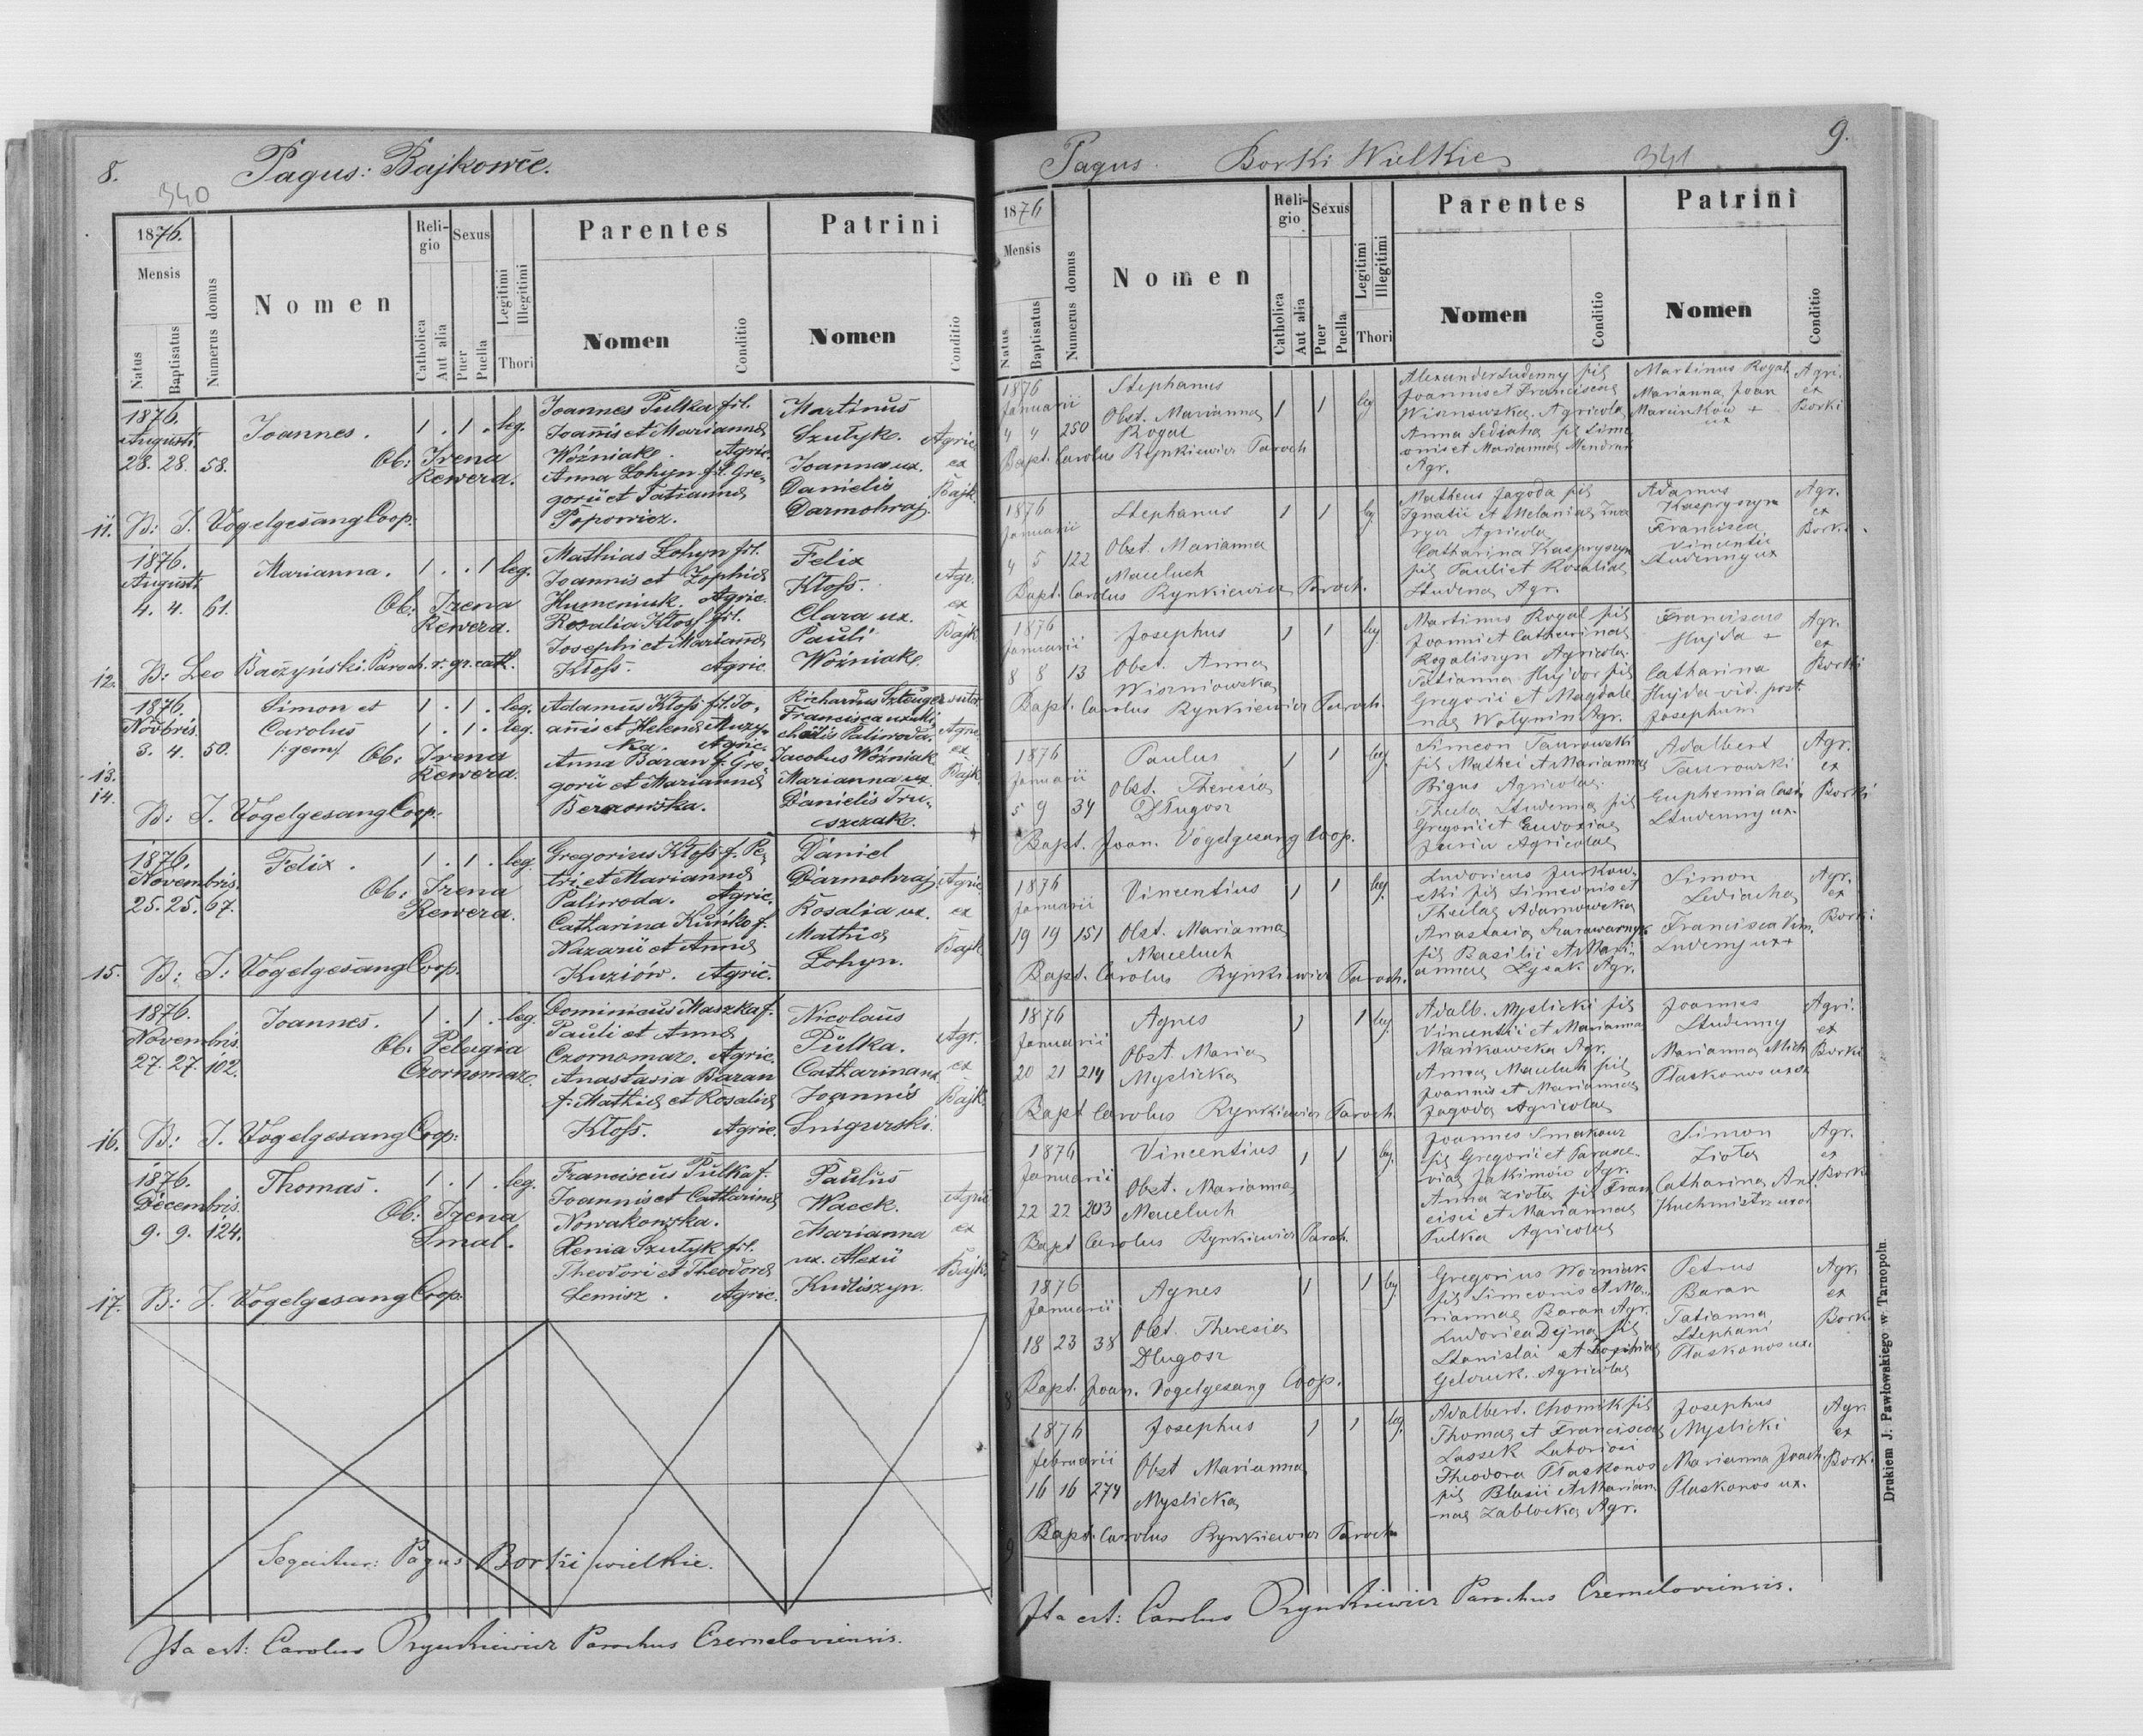 8.
340
Pagus: Bajkowce.
1876.
Mensis
Natus
Baptisatus
Numerus domus
Nomen
Religio
Catholica
Aut alia
Sexus
Puer
Puella
Legitimi
Illegitimi
Thori
Parentes
Nomen
Conditio
Patrini
Nomen
Conditio
1876.
Augusti
28. 28. 58.
Joannes.
Ob: Irena
Rewera.
1 . 1 . leg.
Joannes Pulka fil.
Joannis et Marianna
Woźniak. Agric.
Anna Lohyn fil. Gre=
gorii et Tatianna
Popowicz.
Martinus
Szutyk.
Joanna ux.
Danielis
Darmohraj.
Agric.
ex
Bajk.
11. B: J. Vogelgesang Coop.
1876.
Augusti
4. 4. 61.
Marianna.
Ob: Irena
Rewera.
1 . . 1 leg.
Mathias Lohyn fil.
Joannis et Zophia
Humeniuk. Agric.
Rosalia Kłoss fil.
Josephi et Marianna
Kłoss. Agric.
Felix
Kłoss.
Clara ux.
Pauli
Woźniak.
Agr.
ex
Bajk
12. B: Leo Baczyński Paroch. r. gr. cath.
1876.
Novbris.
3. 4. 50.
Simon et
Carolus
/:gem:/
Ob: Irena
Rewera.
1 . 1 . leg.
1 . 1 . leg.
Adamus Kłoss fil. Jo=
annis et Helena Muzy=
ka. Agric.
Anna Baran f. Gre=
gorii et Marianna
Berezowska.
Francisca ux. Mi=
chaelis Paliwoda.
Jacobus Woźniak
Marianna ux.
Danielis Tru=
szczak.
Agric.
ex
Bajk.
13.
14.
B: J. Vogelgesang Coop.
1876.
Novembris.
25. 25. 67.
Felix.
Ob: Irena
Rewera.
1 . 1 . leg.
Gregorius Kłoss f. Pe=
tri et Marianna
Paliwoda. Agric.
Catharina Kuńko f.
Nazarii et Anna
Kuziow. Agric.
Daniel
Darmohraj
Rosalia ux.
Mathia
Lohyn.
Agric.
ex
Bajk
15. B: J: Vogelgesang Coop.
1876.
Novembris.
27. 27. 102.
Joannes.
Ob: Pelagia
Czornomaz.
1 . 1 . leg.
Dominicus Maszka f.
Pauli et Anna
Czornomaz. Agric.
Anastasia Baran
f. Mathia et Rosalia
Kłoss. Agric.
Nicolaus
Pulka.
Catharina ux.
Joannis
Snigurski.
Agr.
ex
Bajk.
16. B: J. Vogelgesang Coop:
1876.
Decembris.
9. 9. 124.
Thomas.
Ob: Irena
Smal.
1 . 1 . leg.
Franciscus Pulka f.
Joannis et Catharina
Nowakowska.
Xenia Szutyk fil.
Theodori et Theodora
Lemisz. Agric.
Paulus
Wacek.
Marianna
ux. Alexii
Kudliszyn.
Agric
ex
Bajk.
17. B: J. Vogelgesang Coop.
Sequitur: Pagus Borki wielkie.
Ita est: Carolus Rynkiewicz Parochus Czerneloviensis.
9.
341
Pagus. Borki Wielkie
1876
Mensis
Natus
Baptisatus
Numerus domus
Nomen
Religio
Catholica
Aut alia
Sexus
Puer
Puella
Legitimi
Illegitimi
Thori
Parentes
Nomen
Conditio
Patrini
Nomen
Conditio
1876
Januarii
4 4 250
Stephanus
Obst. Marianna
Rogal
1 1 leg
Alexander Sudenny fil
Joannis et Francisca
Wisnowska. Agricola
Anna Sediacha fil Sime
onis et Marianna
Agr.
Martinus Rogal
Marianna Joan
Marcinków +
ux
Agri.
ex
Borki
Bapt. Carolus Rynkiewicz Paroch
1876
Januarii
4 5 122
Stephanus
Obst. Marianna
Maceluch
1 1 leg
Matheus Jagoda fil
Ignatii et Melania
Agricola
Catharina Kaspryszyn
fil Pauli et Rosalia
Studena Agr.
Adamus
Kaspryszyn
Francisca
Vincentii
Studenny ux
Agr.
ex
Borki.
Bapt. Carolus Rynkiewicz Paroch.
1876
Januarii
8 8 13
Josephus
Obst. Anna
Wiszniowska
1 1 leg
Martinus Rogal fil
Joanni et Catharina
Rogaliszyn Agricola.
Tatianna Hujdor fil
Gregorii et Magdale
na Wolynin Agr.
Franciscus
Hujda +
Catharina
Hujda vid. post.
Josephum
Agr.
ex
Borki
Bapt. Carolus Rynkiewicz Paroch.
1876
Januarii
5 9 34
Paulus
Obst. Theresia
Długosz
1 1 leg
Simeon Taurowski
fil Mathei et Marianna
Bigus Agricola
Thecla Studenna fil
Gregorii et Eudoxia
Agricola
Adalbert
Taurowski
Euphemia Casi
Studenny ux.
Agr.
ex
Borki
Bapt. Joan. Vogelgesang Coop.
1876
Januarii
19 19 151
Vincentius
Obst. Marianna
Maceluch
1 1 leg.
Ludovicus Jurkow=
ski fil Simeonis et
Thecla Adamowska
Anastasia
fil Basilii et Mari=
anna Lysak Agr.
Simon
Sediacha
Francisca Vin.
Agr.
ex
Borki
Bapt. Carolus Rynkiewicz Paroch.
1876
Januarii
20 21 214
Agnes
Obst. Maria
Myslicka
1 1 leg.
Adalb. Myslicki fil
Vincentii et Marianna
Mankowska Agr.
Anna Maceluch fil
Joannis et Marianna
Jagoda Agricola
Joannes
Studenny
Marianna Mich.
Plaskonos uxor
Agri.
ex
Borki
Bapt Carolus Rynkiewicz Paroch
1876
Januarii
22 22 203
Vincentius
Obst. Marianna
Maceluch
1 1 leg.
Joannes Smakouz
fil Gregorii et Parasce
via Jakimów Agr.
Anna Ziola fil Fran
cisci et Marianna
Pulka Agricola
Simon
Ziola
Catharina Ant.
Kuchmistrz uxor
Agr.
ex
Borki
Bapt Carolus Rynkiewicz Paroh.
1876
Januarii
18 23 38
Agnes
Obst. Theresia
Długosz
1 1 leg
Gregorius Wozniak
fil Simeonis et Ma=
rianna Baran Agr.
Ludovica Dejna fil
Stanislai et Zophia
Agricola
Petrus
Baran
Tatianna
Stephani
Plaskonos ux.
Agr.
ex
Bork.
8 Bapt. Joan. Vogelgesang Coop.
1876
februarii
16 16 274
Josephus
Obst Marianna
Myslicka
1 1 leg.
Adalbert. Chomik fil
Thoma et Francisca
Lassek Laboriosi
Theodora Plaskonos
fil Blasii et Marian
na Zablocka Agr.
Josephus
Myslicki
Marianna Joach.
Plaskonos ux.
Agr.
ex
Bork.
9 Bapt. Carolus Rynkiewicz Paroch
Ita est: Carolus Rynkiewicz Parochus Czerneloviensis.
Drukiem J. Pawłowskiego w Tarnopolu.